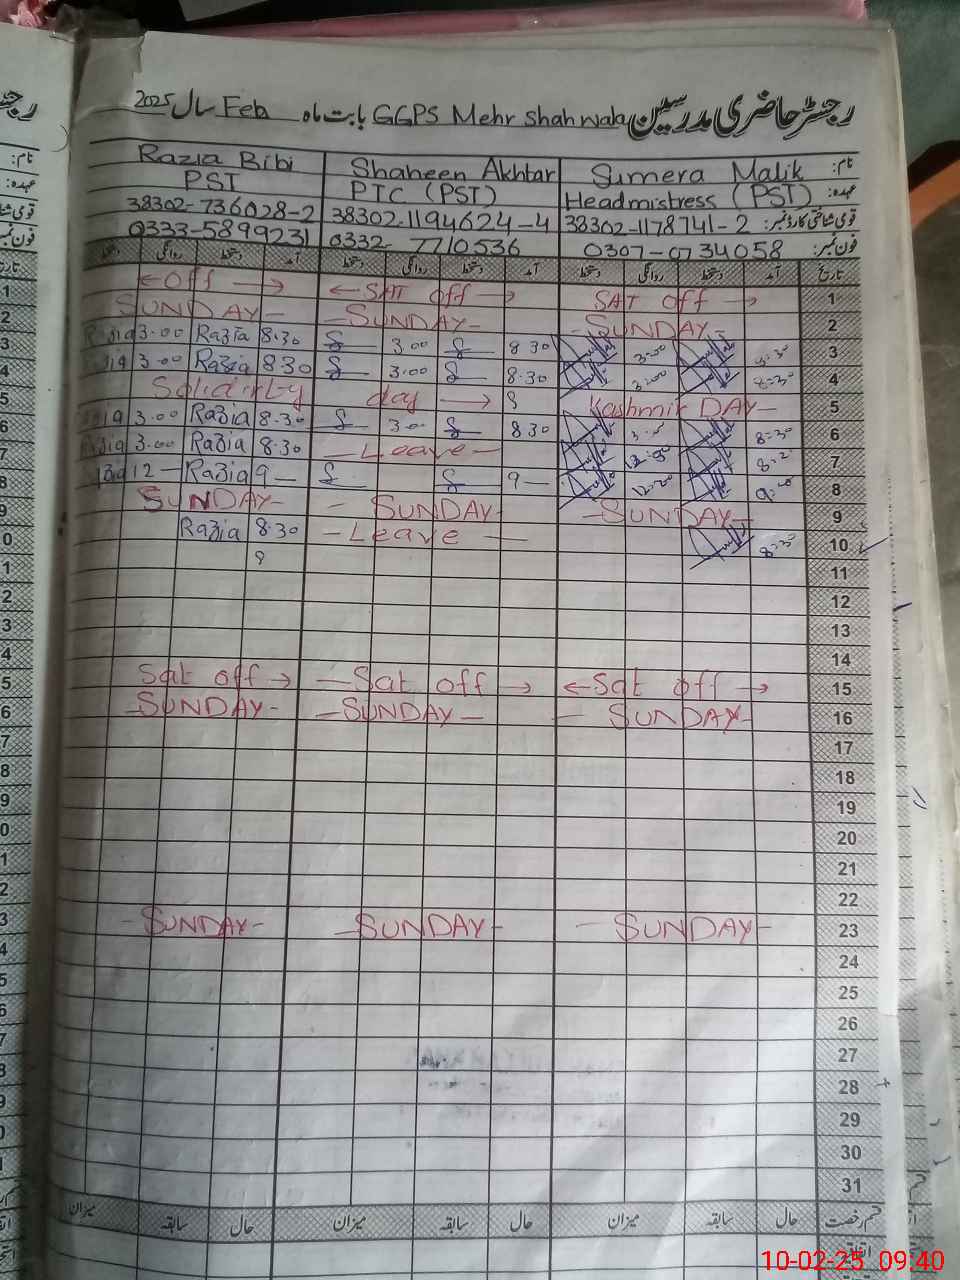 رجسٹر حاضری مدرسین GGPS Mehr Shah wala بابت ماہ Feb سال 2025
نام: Sumera Malik Shaheen Akhtar Razia Bibi
عہدہ: Headmistress (PST) PTC (PST) PST
قومی شناختی کارڈ نمبر: 38302-1178741-2 38302-1194624-4 38302-736028-2
فون نمبر: 0307-0734058 0332-7710536 0333-5899231
تاریخ آمد دستخط روانگی دستخط آمد دستخط روانگی دستخط آمد دستخط روانگی دستخط
1 SAT off SAT off Off
2 SUNDAY SUNDAY SUNDAY
3 8=30 3=00 8 30 3.00 8.30 Razia 3.00 Razia
4 8=30 3=00 8.30 3.00 8.30 Razia 3.00
5 Kashmir DAY Solidirty day
6 8=30 8 30 3.00 8.30 Razia 3.00
7 12=30 Leave 8.30 Razia 3.00 Razia
8 12=30 9 9 Razia 12
9 SUNDAY SUNDAY SUNDAY
10 8=30 Leave 8.30 Razia
11
12
13
14
15 Sat off Sat off Sat off
16 SUNDAY SUNDAY SUNDAY
17
18
19
20
21
22
23 SUNDAY SUNDAY SUNDAY
24
25
26
27
28
29
30
31
قسم رخصت حال سابقہ میزان حال سابقہ میزان حال سابقہ میزان
10-02-25 09:40